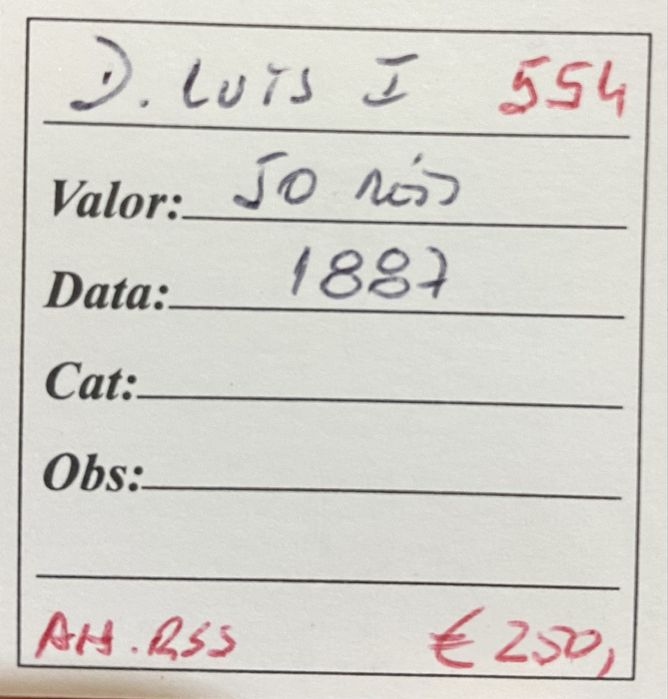 D. LUIS I 554
Valor: 50 réis
Data: 1887
Cat:
Obs:
AH. RSS € 250,